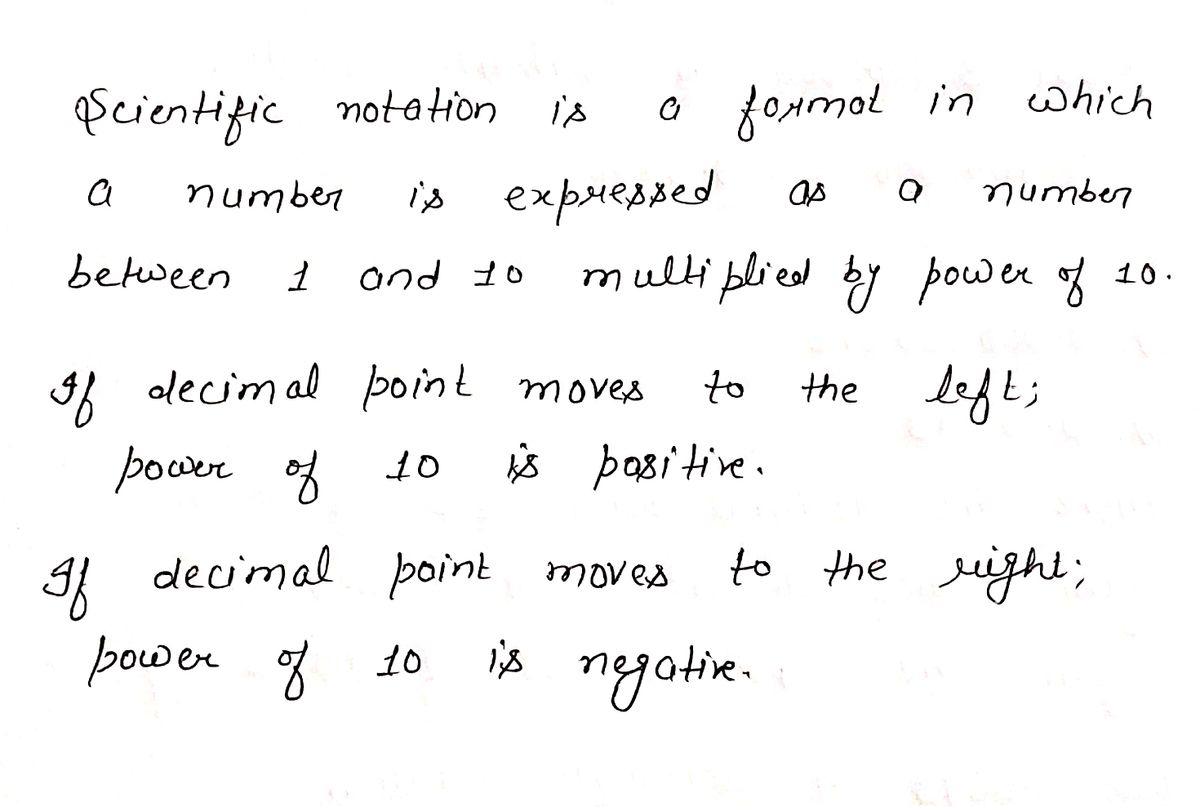 Scientific notation is a format in which
a number is expressed as a number
between 1 and 10 multiplied by power of 10.
If decimal point moves to the left;
power of 10 is positive.
If decimal point moves to the right;
power of 10 is negative.